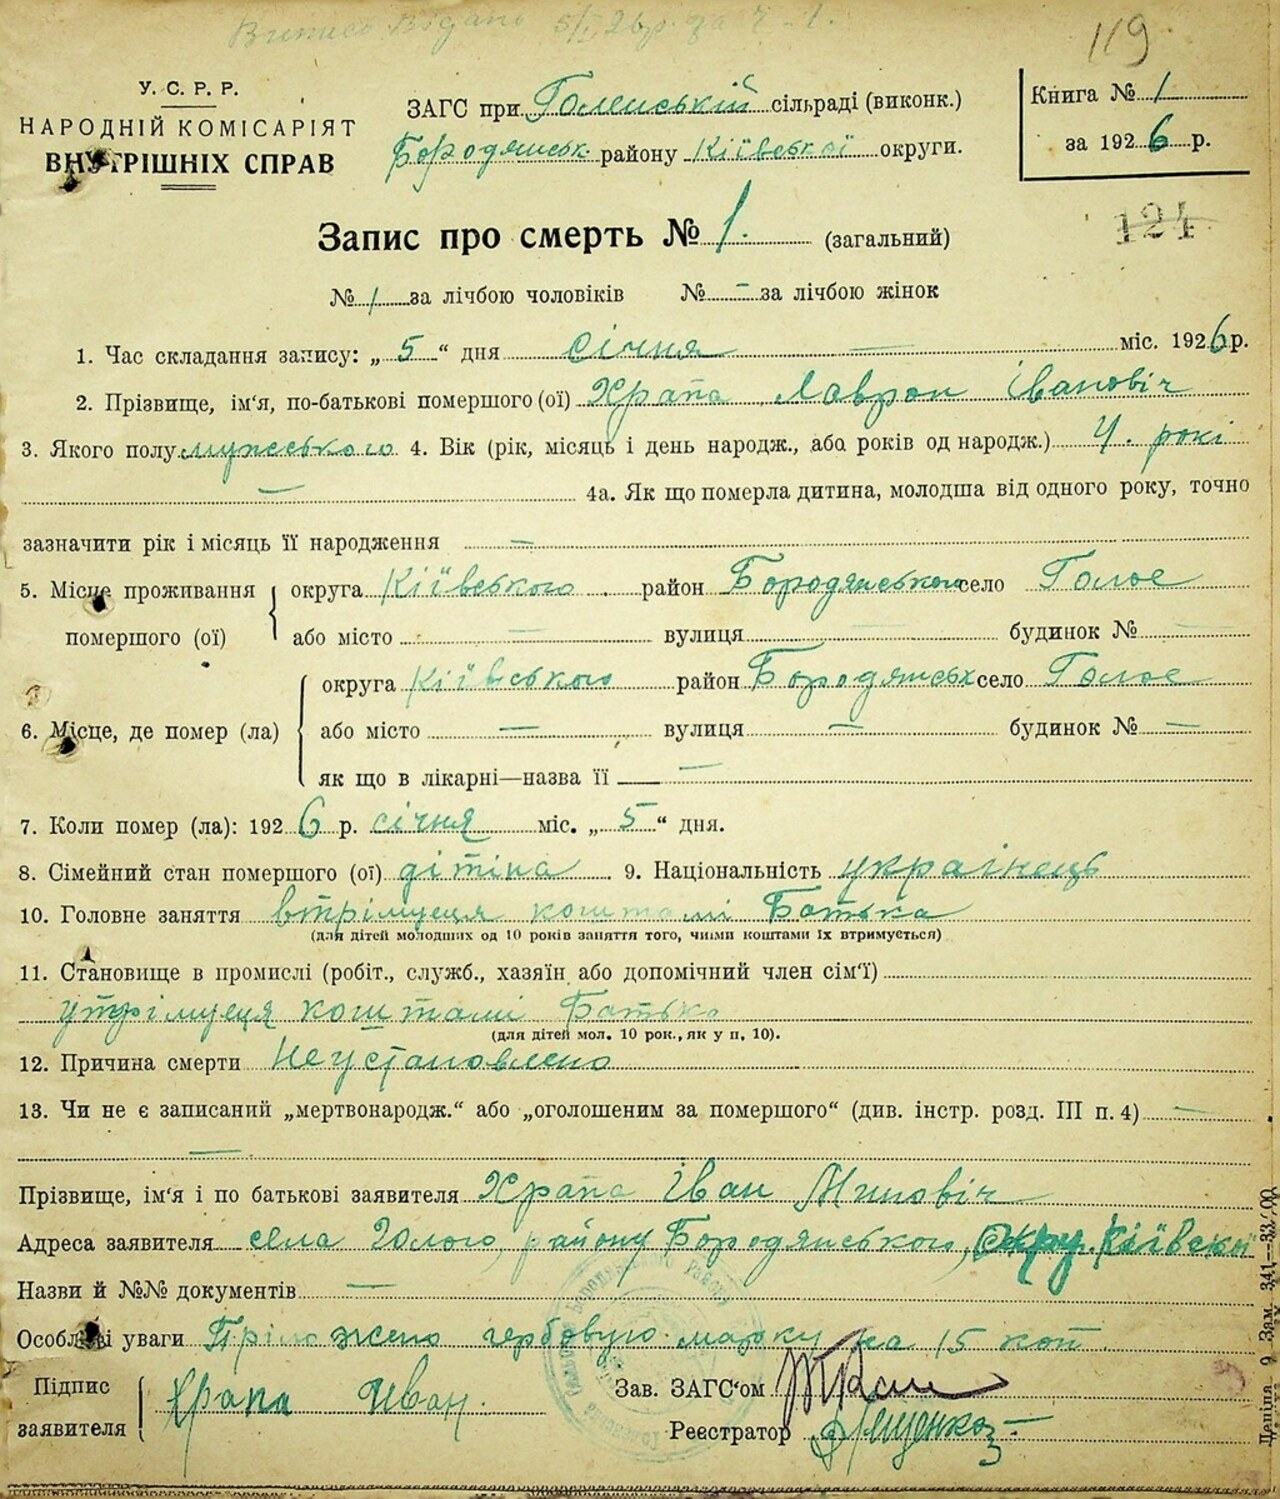 Випись Видано 5/I 26 р. за ч. 1.
119
У. С. Р. Р.
НАРОДНІЙ КОМІСАРІЯТ
ВНУТРІШНІХ СПРАВ
ЗАГС при Голенській сільраді (виконк.)
Бородянськ. району Київської округи.
Книга № 1
за 1926 р.
Запис про смерть № 1. (загальний)
124
№ 1 за лічбою чоловіків № - за лічбою жінок
1. Час складання запису: „ 5 “ дня січня — міс. 1926 р.
2. Прізвище, ім‘я, по-батькові помершого (ої) Храпа Лаврон Івановіч
3. Якого полу мужського 4. Вік (рік, місяць і день народж., або років од народж.) 4. рокі
— 4а. Як що померла дитина, молодша від одного року, точно
зазначити рік і місяць її народження —
5. Місце проживання помершого (ої) округа Київського район Бородянського село Голое
або місто — вулиця — будинок № —
6. Місце, де помер (ла) округа Київського район Бородянськ село Голое
або місто — вулиця — будинок № —
як що в лікарні—назва її —
7. Коли помер (ла): 1926 р. січня міс. „ 5 “ дня.
8. Сімейний стан помершого (ої) дітіна 9. Національність украінець
10. Головне заняття втрімуеця коштамі Батька
(для дітей молодших од 10 років заняття того, чиїми коштами їх втримується)
11. Становище в промислі (робіт., служб., хазяїн або допомічний член сім‘ї)
утрімуеця коштамі Батько
(для дітей мол. 10 рок., як у п. 10).
12. Причина смерти Неустановлено
13. Чи не є записаний „мертвонародж.“ або „оголошеним за помершого“ (див. інстр. розд. III п. 4) —
—
Прізвище, ім‘я і по батькові заявителя Храпа Іван Миновіч
Адреса заявителя села Голого, району Бородянського, Окру. Київскої
Назви й №№ документів —
Особливі уваги Пріложено гербовую марку на 15 коп.
Підпис заявителя Храпа Иван.
Зав. ЗАГС‘ом
Реєстратор Лященко
Цепіля 9 Зам. 341—33/00